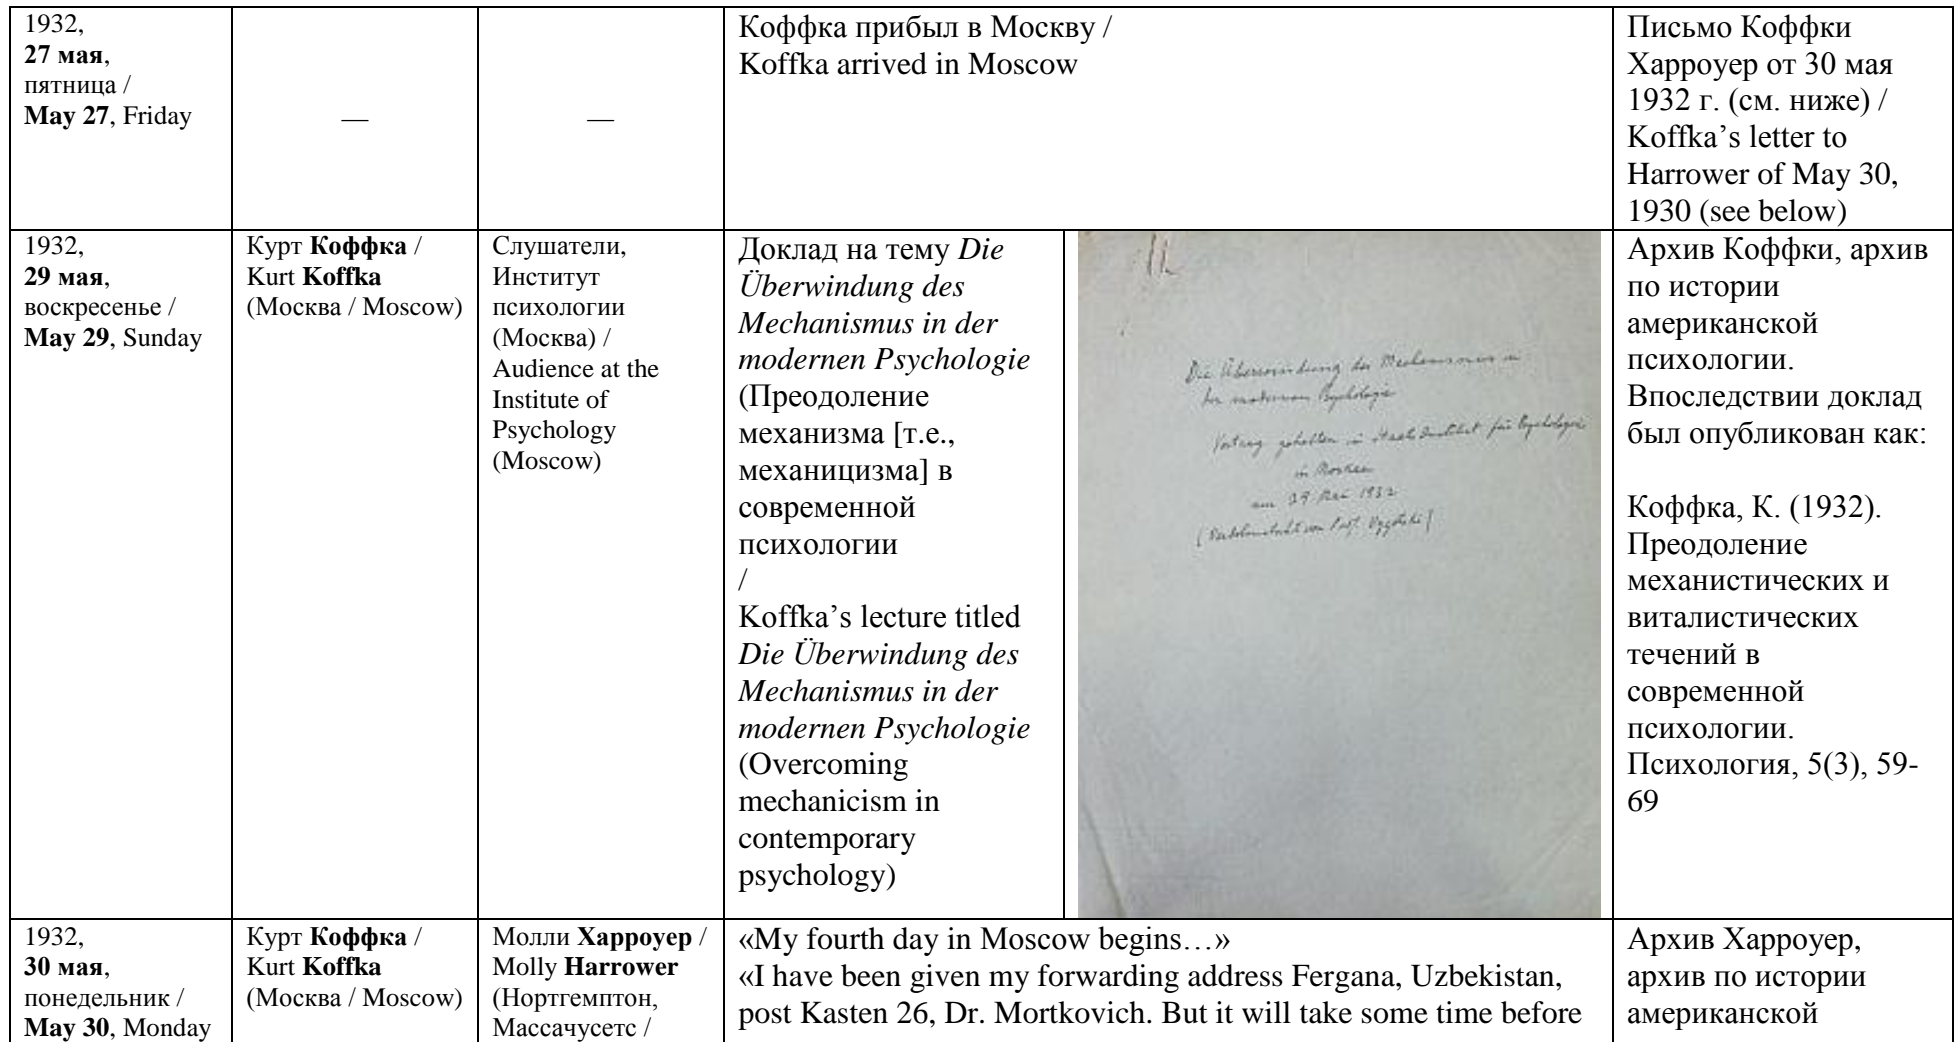 1932,
27 мая,
пятница /
May 27, Friday
—
—
Коффка прибыл в Москву /
Koffka arrived in Moscow
Письмо Коффки
Харроуер от 30 мая
1932 г. (см. ниже) /
Koffka’s letter to
Harrower of May 30,
1930 (see below)
1932,
29 мая,
воскресенье /
May 29, Sunday
Курт Коффка /
Kurt Koffka
(Москва / Moscow)
Слушатели,
Институт
психологии
(Москва) /
Audience at the
Institute of
Psychology
(Moscow)
Доклад на тему Die
Überwindung des
Mechanismus in der
modernen Psychologie
(Преодоление
механизма [т.е.,
механицизма] в
современной
психологии
/
Koffka’s lecture titled
Die Überwindung des
Mechanismus in der
modernen Psychologie
(Overcoming
mechanicism in
contemporary
psychology)
Die Überwindung des Mechanismus in
der modernen Psychologie
Vortrag gehalten im Institut für Psychologie
in Moskau
am 29 Mai 1932
Архив Коффки, архив
по истории
американской
психологии.
Впоследствии доклад
был опубликован как:
Коффка, К. (1932).
Преодоление
механистических и
виталистических
течений в
современной
психологии.
Психология, 5(3), 59-
69
1932,
30 мая,
понедельник /
May 30, Monday
Курт Коффка /
Kurt Koffka
(Москва / Moscow)
Молли Харроуер /
Molly Harrower
(Нортгемптон,
Массачусетс /
«My fourth day in Moscow begins…»
«I have been given my forwarding address Fergana, Uzbekistan,
post Kasten 26, Dr. Mortkovich. But it will take some time before
Архив Харроуер,
архив по истории
американской